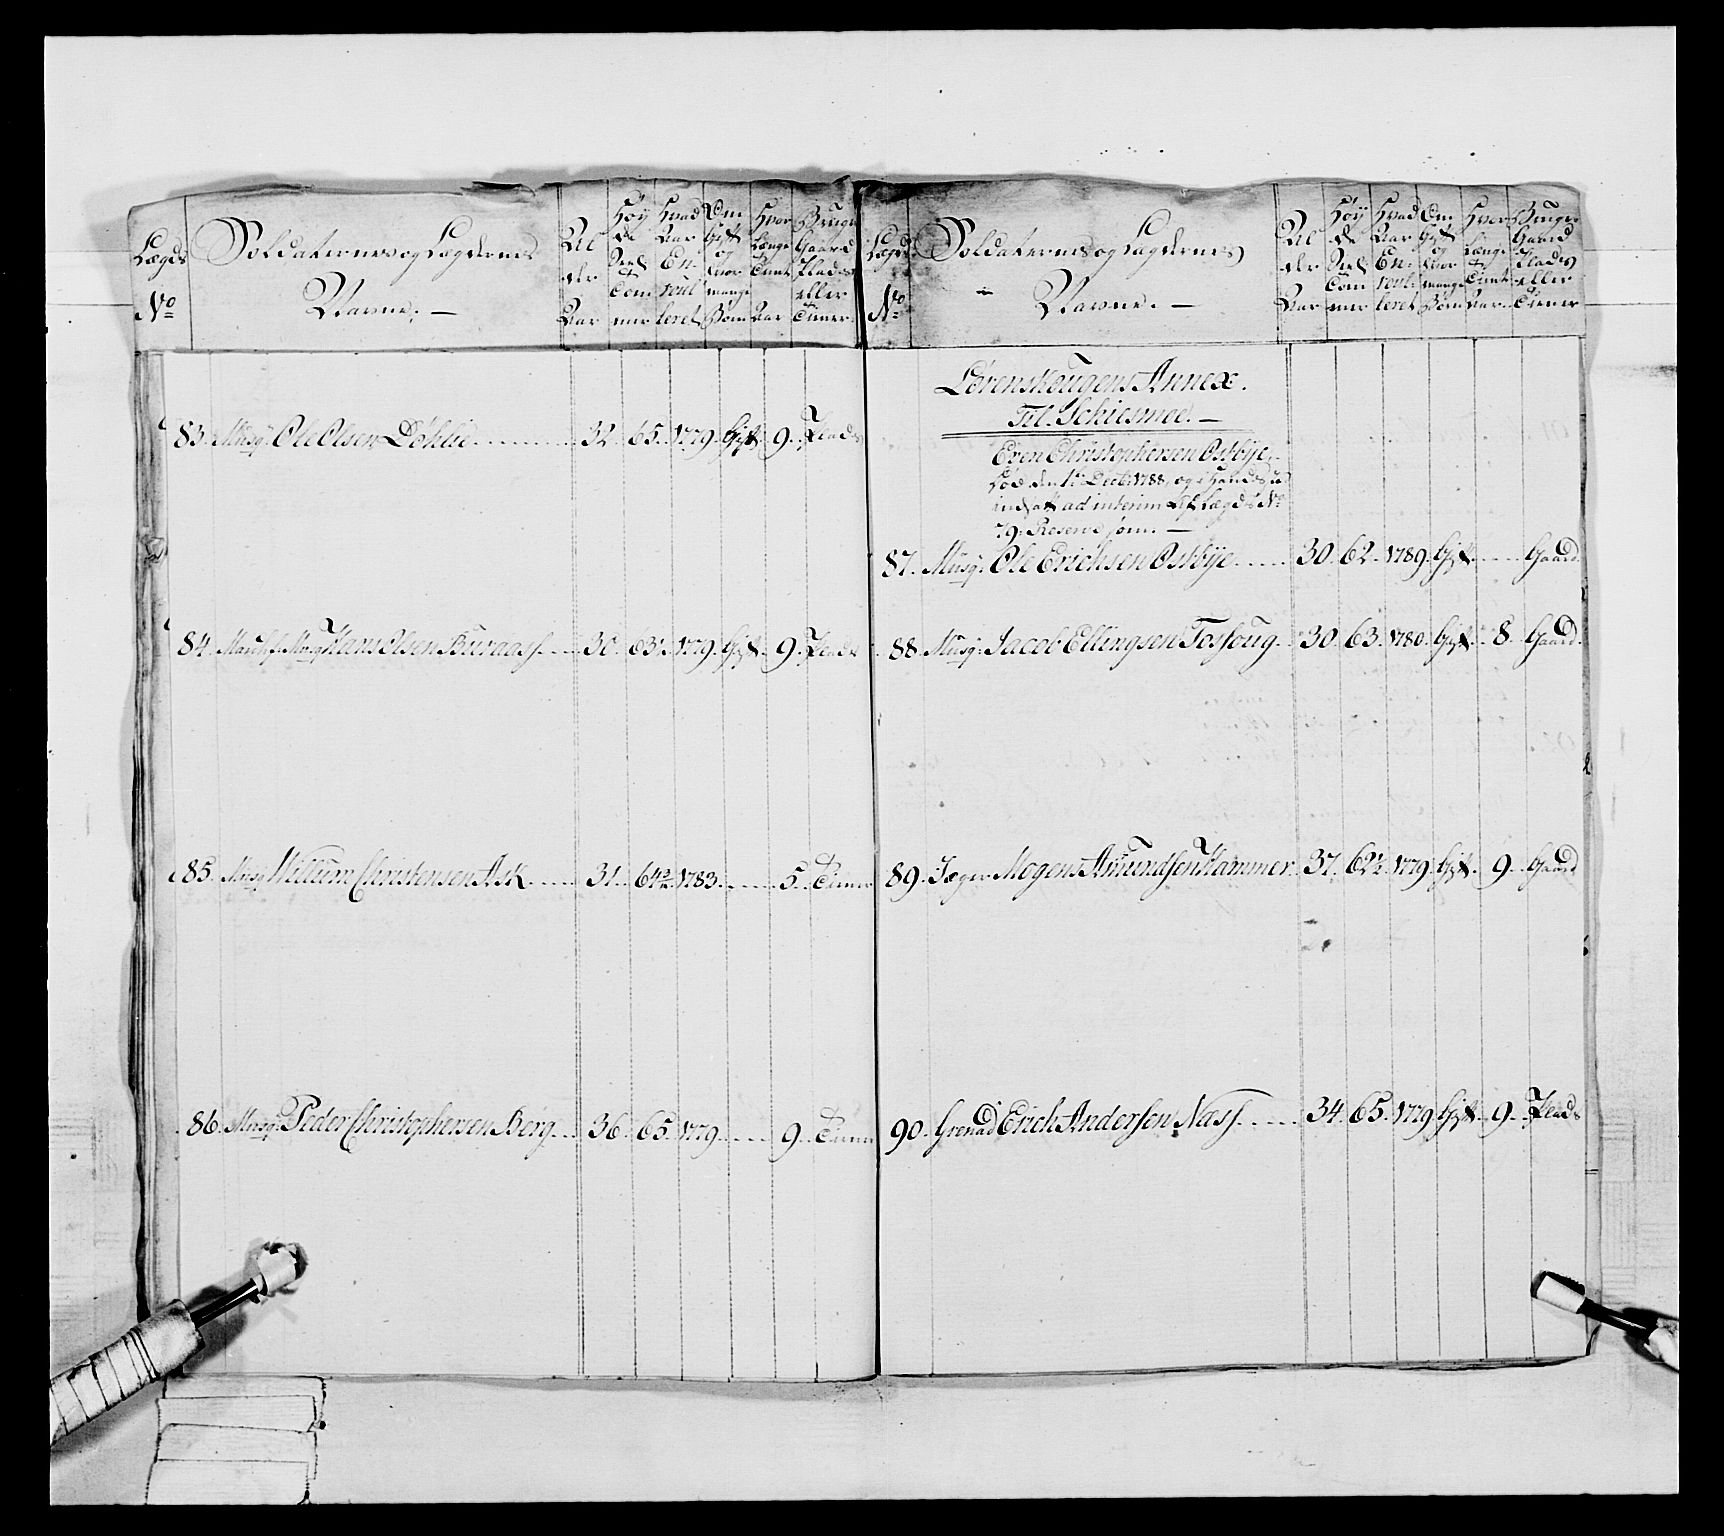 Lægds No
Soldaternes og Lægdernes Navne. —
Al der Aar
Høy de Sexl Tom mer
Hvad Aar En roul leret
Om Gift og hvor mange Børn
Hvor Længe Tient Aar
Bruger Gaard Plads eller Tiener
83. Musq: Ole Olsen Døhlie 32. 65. 1779. Gift. 9. Plads
84. Musq Hans Olsen Buraass 30. 63. 1779. Gift. 9. Plads
85. Musq Willum Christensen Ask 31. 64½. 1783. 5. Tiener
86. Musq: Peder Christophersen Berg 36. 65. 1779. 9. Tiener
Lægds No
Soldaternes og Lægdernes Navne. —
Al der Aar
Høy de Sexl Tom mer
Hvad Aar En roul: leret
Om Gift og hvor mange Børn
Hvor Længe Tient Aar
Bruger Gaard Plads eller Tiener
Lørenskougens Annex.
Til Schiesmoe. —
Even Christophersen Østbye,
død den 1te Decb: 1788, og
indsatt ad interim Lægds No
79: Reserve
87. Musq: Ole Erichsen Østbye 30. 62. 1789. Gift. Gaard.
88. Musq: Jacob Ellingsen Losjoug 30. 63. 1780. Gift. 8. Gaard.
89. Jæger Mogens Amundsen Hammer 37. 62½. 1779. Gift. 9. Gaard
90. Grenad Erich Andersen Næss 34. 65. 1779. Gift. 9. Plads